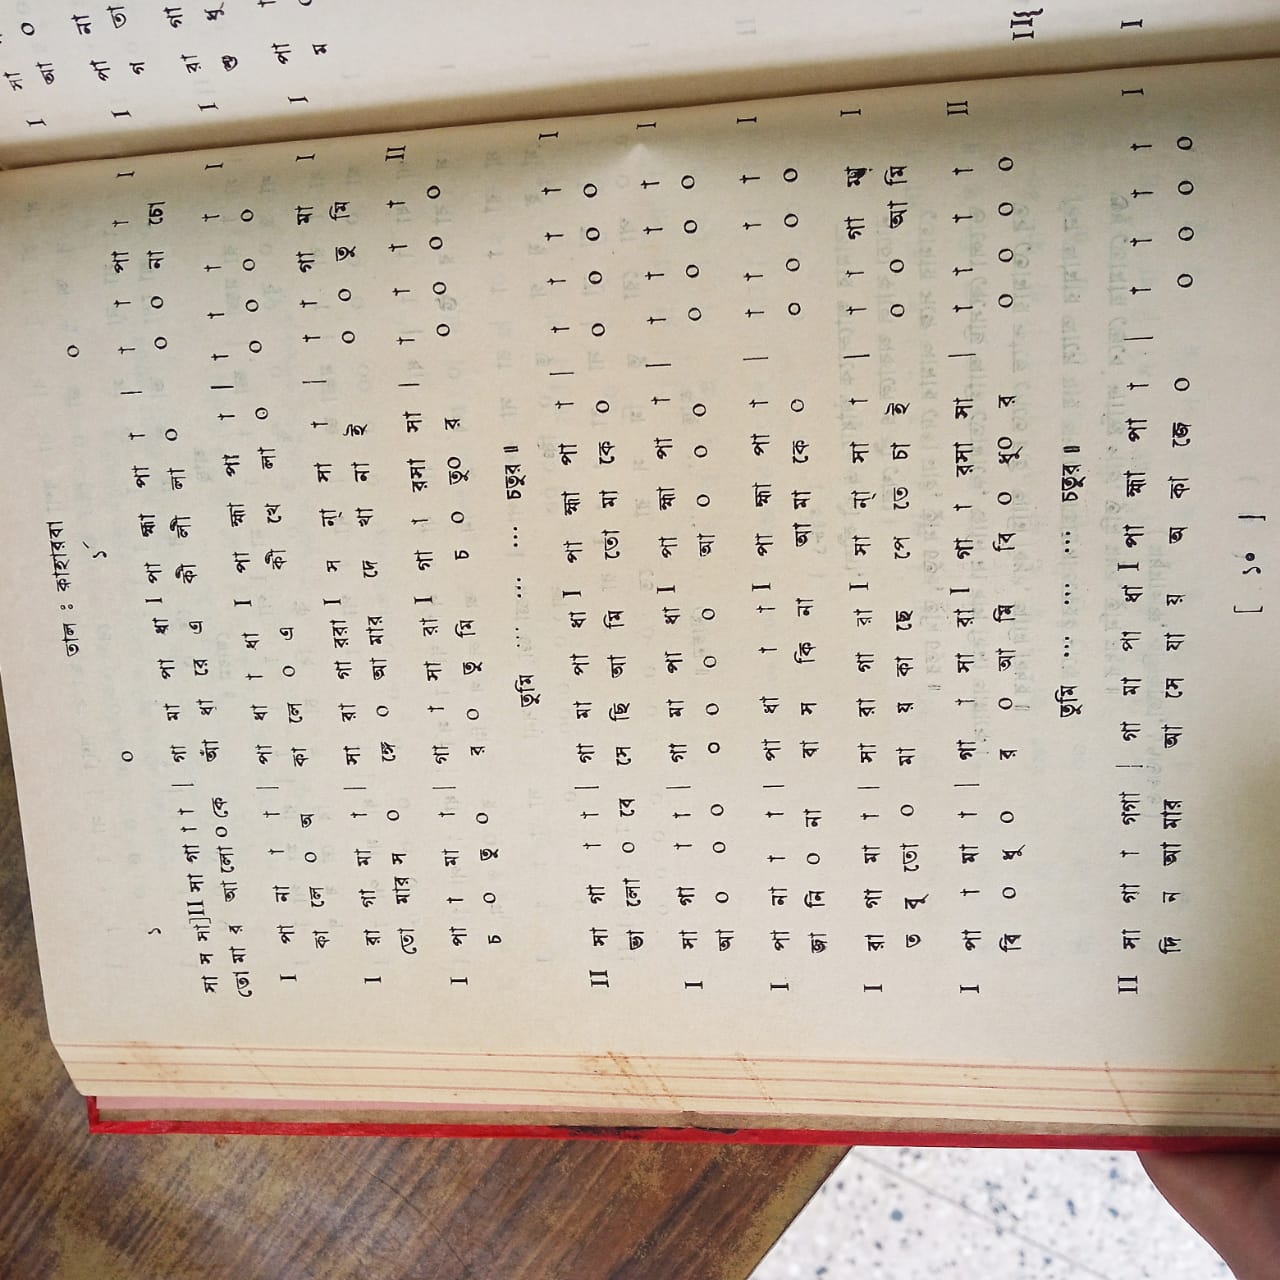 তাল : কাহারবা
১´ ০
১ ০
সা স সা]II সা গা । । | গা মা পা ধা I পা হ্মা পা । | । । পা । I
তো মা র আ লো ০ কে আঁ ধা রে এ কী লী লা ০ ০ ০ না চো
I পা না । । | পা ধা । ধা I পা হ্মা পা । | । । । । I
কা লে ০ অ কা লে ০ এ কী খে লা ০ ০ ০ ০ ০
I রা গা মা । | সা রা গা ররা I স ন্‌ সা । | । । গা মা I
তো মার স ০ ঙ্গে ০ আ মার দে খা না ই ০ ০ তু মি
I পা । মা । | গা । সা রা I গা । রসা সা | । । । । II
চ ০ তু ০ র ০ তু মি চ ০ তু০ র ০ ০ ০ ০
তুমি ... ... ... চতুর ॥
II সা গা । । | গা মা পা ধা I পা হ্মা পা । | । । । । I
ভা লো ০ বে সে ছি আ মি তো মা কে ০ ০ ০ ০ ০
I সা গা । । | গা মা পা ধা I পা হ্মা পা । | । । । । I
আ ০ ০ ০ ০ ০ ০ ০ আ ০ ০ ০ ০ ০ ০ ০
I পা না । । | পা ধা । । I পা হ্মা পা । | । । । । I
জা নি ০ না বা স কি না আ মা কে ০ ০ ০ ০ ০
I রা গা মা । | সা রা গা রা I সা ন্‌ সা । | । । গা I
ত বু তো ০ মা য় কা ছে পে তে চা ই ০ ০ আ মি
I পা । মা । | গা । সা রা I গা । রসা সা | । । । । II
বি ০ ধু ০ র ০ আ মি বি ০ ধু০ র ০ ০ ০ ০
তুমি ... ... ... ... চতুর ॥
II সা গা । গগা | গা মা পা ধা I পা হ্মা পা । | । । । । I
দি ন আ মার আ সে যা য় অ কা জে ০ ০ ০ ০ ০
[ ১০ ]